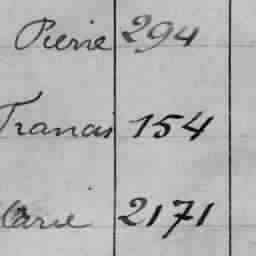 Pierre 294
Francis 154
Marie 2171